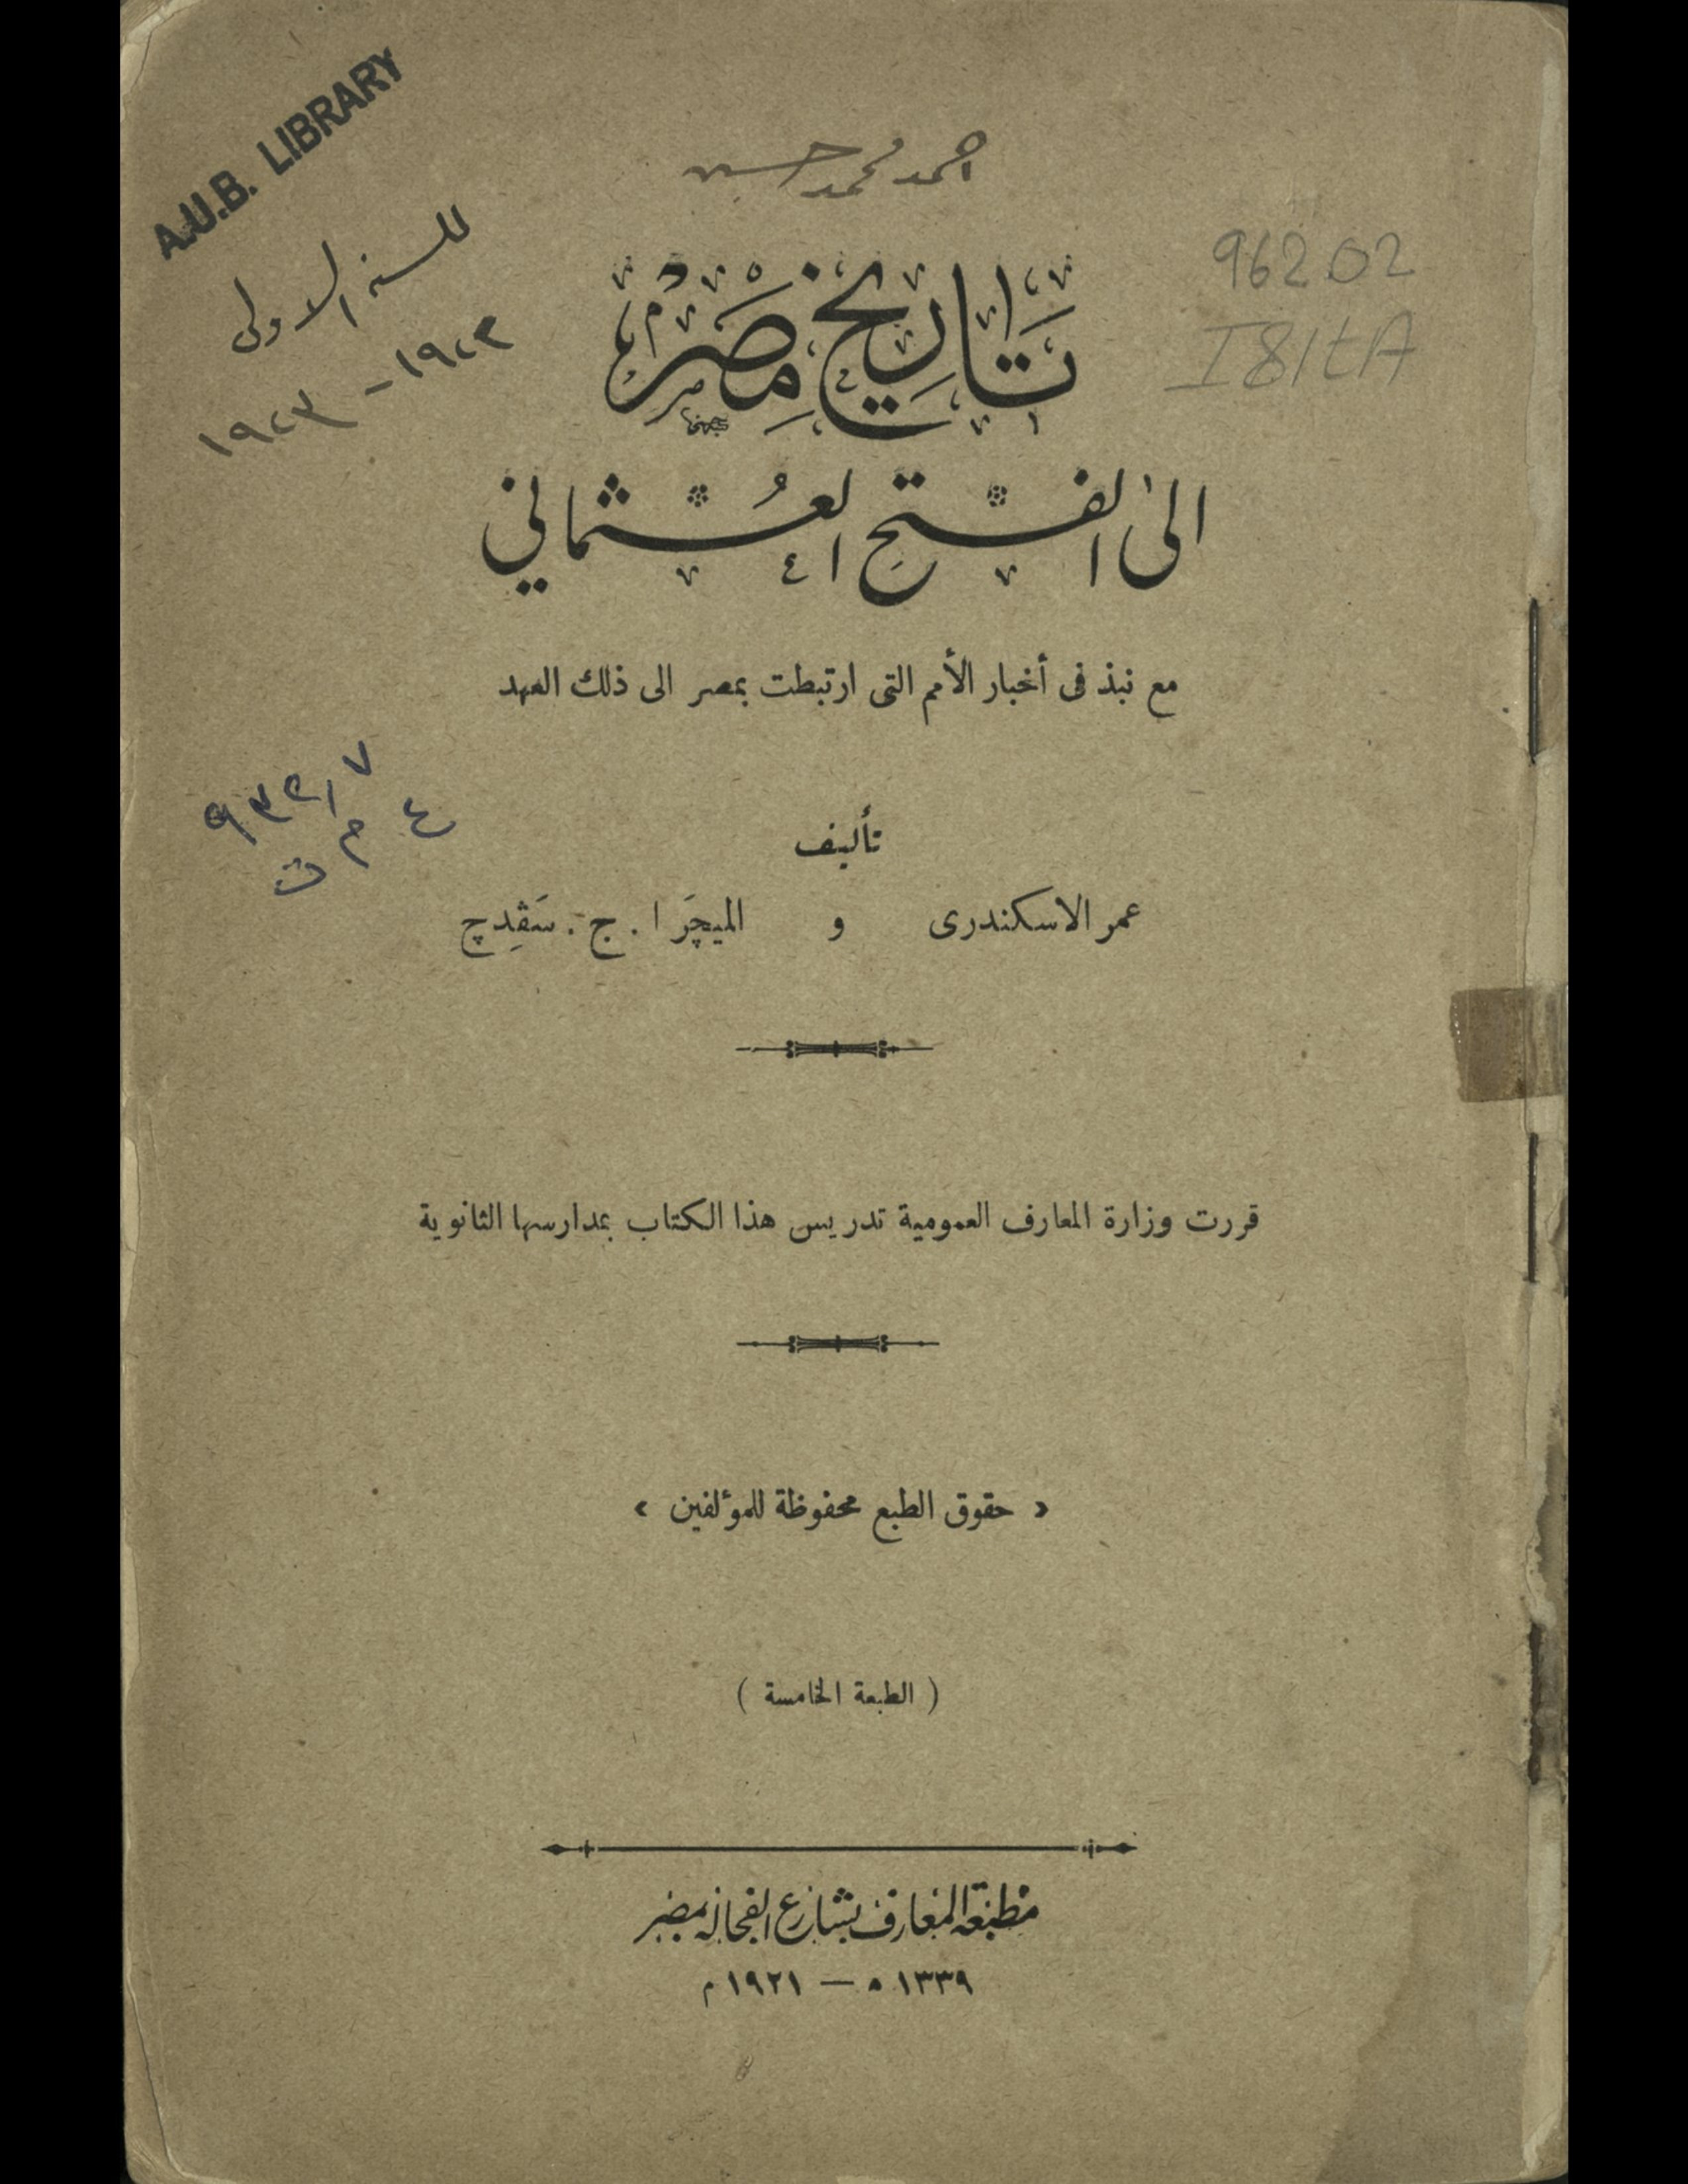 A.U.B. LIBRARY
احمد محمد حسين
للسنة الاولى
١٩٢٢ - ١٩٢٣
962.02
I81tA
تاريخ مصر
الى الفتح العثماني
مع نبذ فى أخبار الأمم التى ارتبطت بمصر الى ذلك العهد
٩٣٢٫٧
ع م ت
تأليف
عمر الاسكندرى و الميچَر ا . ج . سَڤِدچ
قررت وزارة المعارف العمومية تدريس هذا الكتاب بمدارسها الثانوية
« حقوق الطبع محفوظة للمؤلفين »
( الطبعة الخامسة )
مطبعة المعارف بشارع الفجالة بمصر
١٣٣٩ ه — ١٩٢١ م